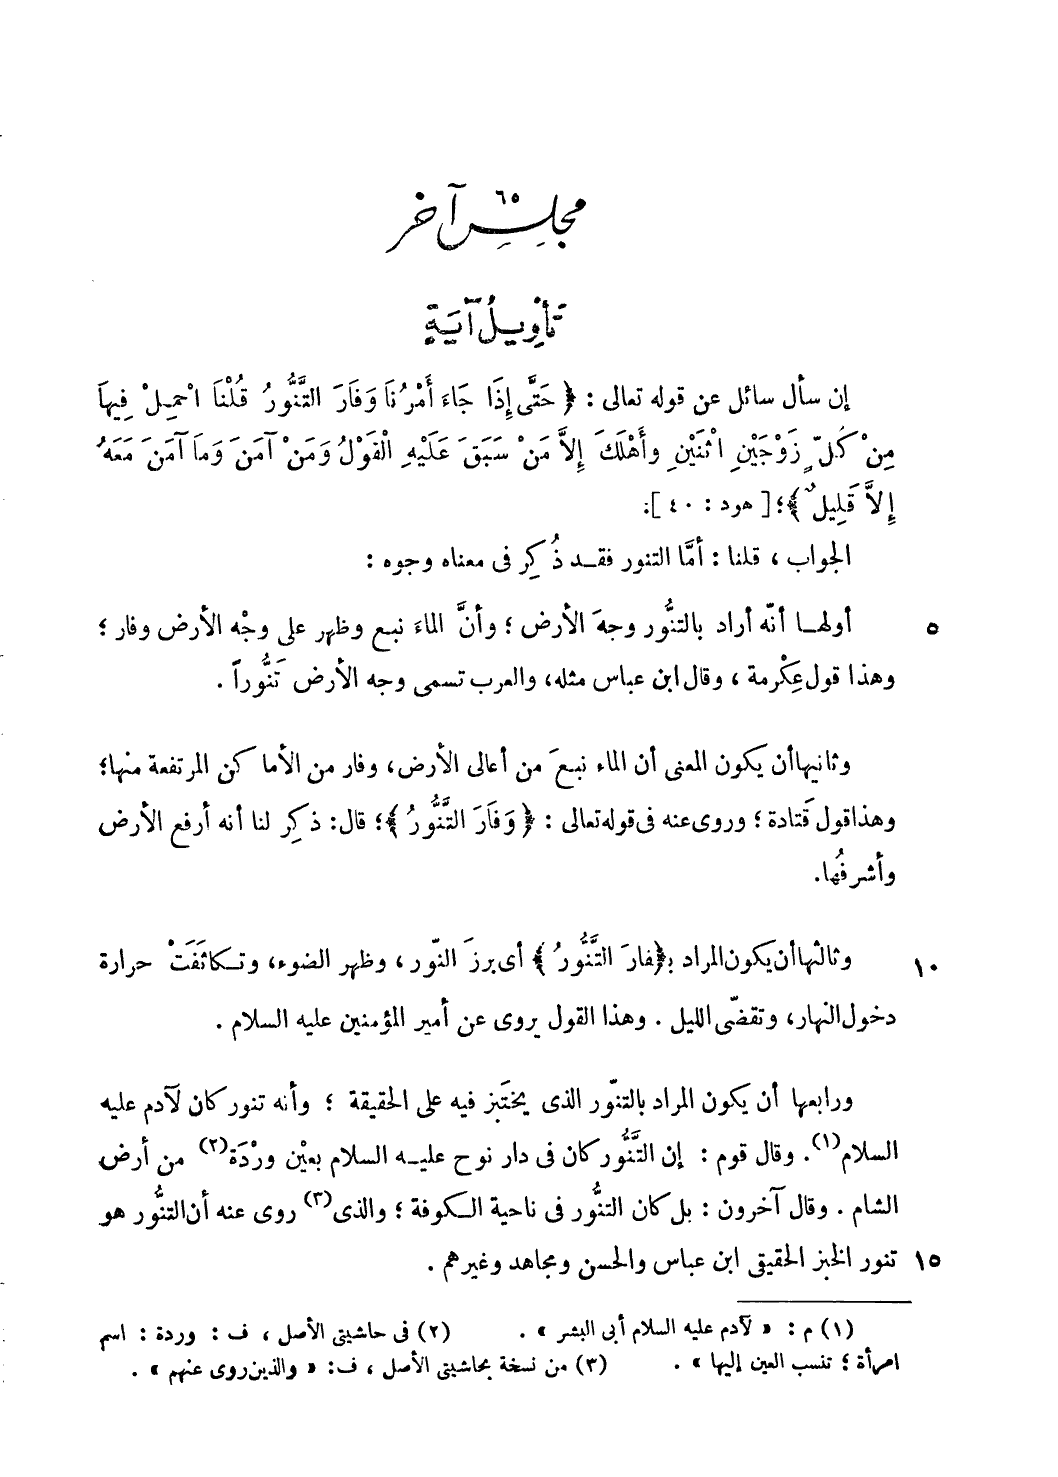 ٦٥
مجلس آخر
تأويل آية
إن سأل سائل عن قوله تعالى : ﴿ حَتَّى إِذَا جَاءَ أَمْرُنَا وَفَارَ التَّنُّورُ قُلْنَا احْمِلْ فِيهاَ
مِنْ كُلّ زَوْجَيْنِ اثْنَيْنِ وأَهْلَكَ إِلاَّ مَنْ سَبَقَ عَلَيْهِ الْقَوْلُ وَمَنْ آمَنَ وَماَ آمَنَ مَعَهُ
إِلاَّ قَلِيلٌ ﴾؛ [ هود : ٤٠ ].
الجواب ، قلنا : أمَّا التنور فقد ذُكِر فى معناه وجوه :
٥ أولها أنّه أراد بالتنُّور وجهَ الأرض ؛ وأنَّ الماءَ نبع وظهر على وجْه الأرض وفار ؛
وهذا قول عِكْرمة ، وقال ابن عباس مثله، والعرب تسمى وجه الأرض تَنُّوراً .
وثانيها أن يكون المعنى أن الماء نبعَ من أعالى الأرض، وفار من الأماكن المرتفعة منها؛
وهذا قول قَتادة ؛ وروى عنه فى قوله تعالى : ﴿ وَفَارَ التَّنُّورُ ﴾؛ قال: ذكِر لنا أنه أرفع الأرض
وأشرفُها.
١٠ وثالثها أن يكون المراد بـ﴿فارَ التَّنُّورُ ﴾ أى برزَ النّور ، وظهر الضوء، وتكاثَفَتْ حرارة
دخول النهار، وتقضّى الليل . وهذا القول يروى عن أمير المؤمنين عليه السلام .
ورابعها أن يكون المراد بالتنّور الذى يختَبز فيه على الحقيقة ؛ وأنه تنور كان لآدم عليه
السلام(١). وقال قوم : إن التَّنُّور كان فى دار نوح عليه السلام بعيْن ورْدَة(٢) من أرض
الشام . وقال آخرون : بل كان التنُّور فى ناحية الكوفة ؛ والذى(٣) روى عنه أن التنُّور هو
١٥ تنور الخبز الحقيقى ابن عباس والحسن ومجاهد وغيرهم .
(١) م : « لآدم عليه السلام أبى البشر » . (٢) فى حاشيتى الأصل ، ف : وردة : اسم
امرأة ؛ تنسب العين إليها » . (٣) من نسخة بحاشيتى الأصل ، ف: « والذين روى عنهم » .